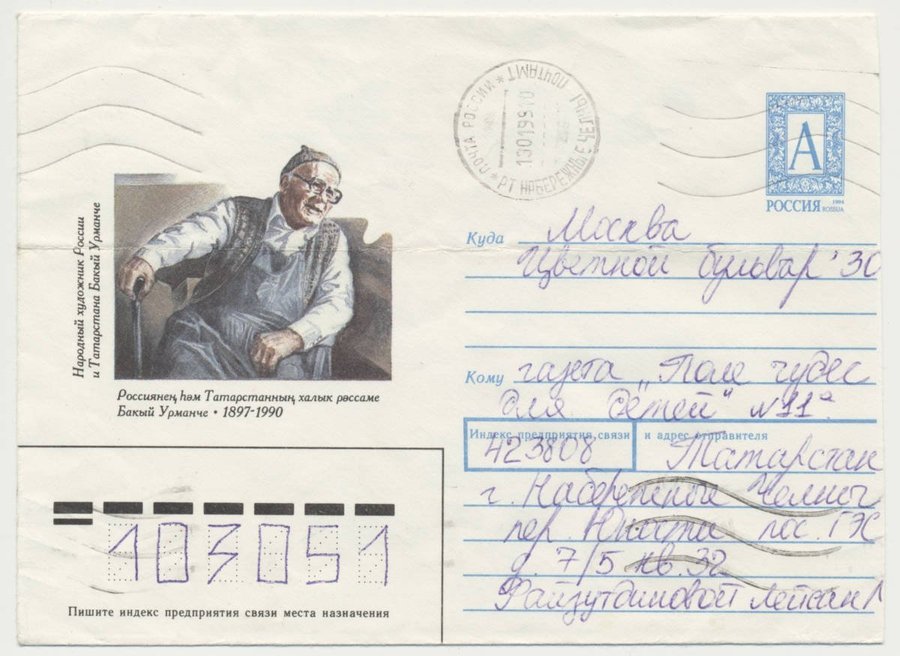 Народный художник России
и Татарстана Бакый Урманче
Россиянең һәм Татарстанның халык рәссаме
Бакый Урманче • 1897-1990
ПОЧТА РОССИИ * ПОЧТАМТ
РТ НАБЕРЕЖНЫЕ ЧЕЛНЫ
13019910
А
РОССИЯ 1994 ROSSIJA
Куда Москва
Цветной бульвар 30
Кому газета "Поле чудес
для детей" N11ª
Индекс предприятия связи и адрес отправителя
423808 Татарстан
г. Набережные Челны
пер. Юности пос. ГЭС
д. 7/5 кв. 32
Файзутдиновой Лейсан
103051
Пишите индекс предприятия связи места назначения